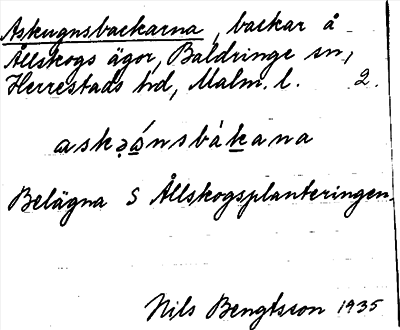 Askugnsbackarna, backar å
Ållskogs ägor, Baldringe sn,
Herrestads hd, Malm. l. 2.
askə̣ǻnsbàkana
Belägna S Ållskogsplanteringen.
Nils Bengtsson 1935